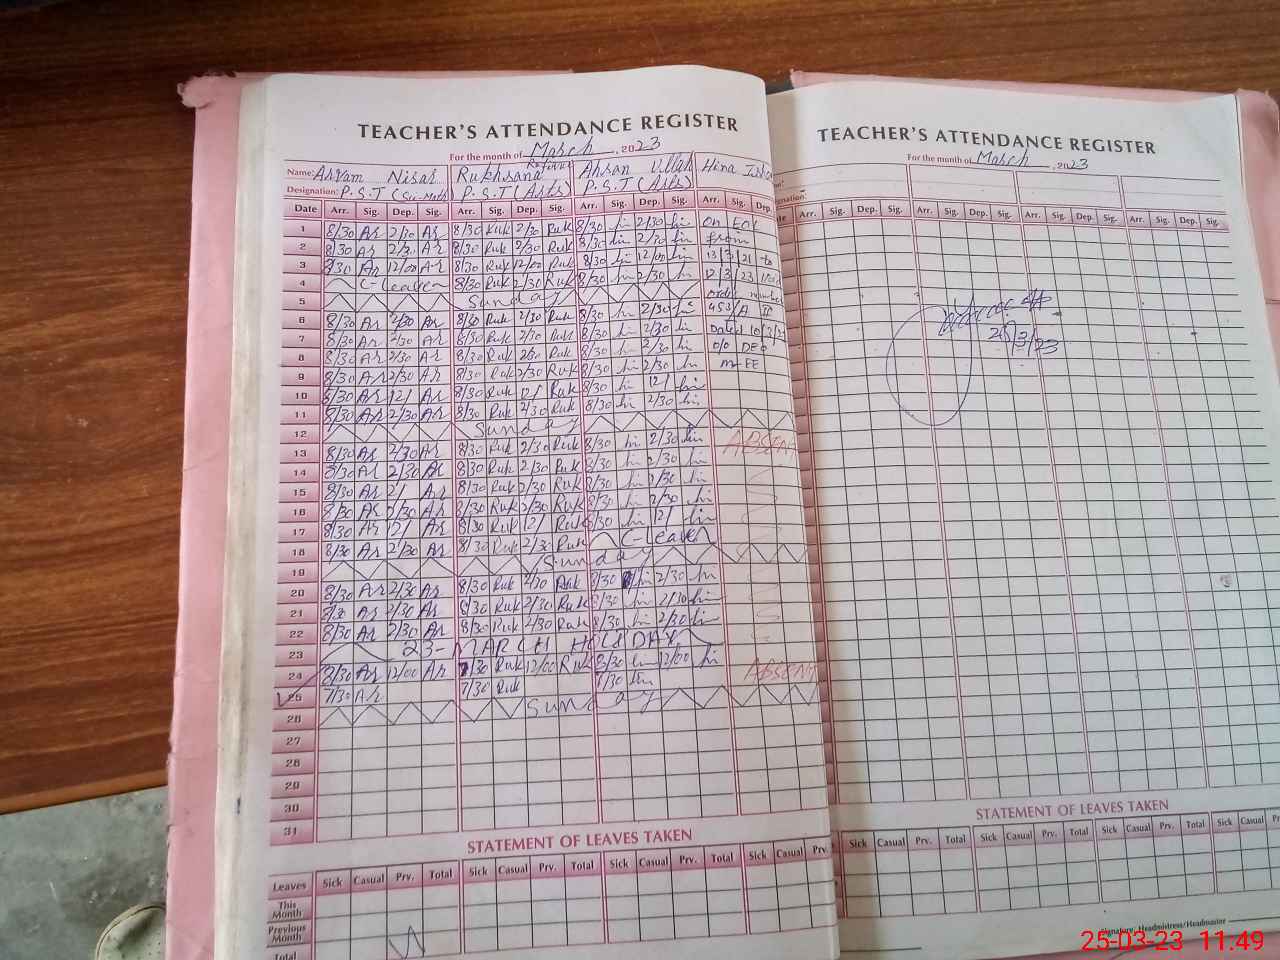 TEACHER'S ATTENDANCE REGISTER
For the month of March, 2023
Name: Asyam Nisar Rukhsana Ahsan Ullah Hina
Designation: P.S.T (Sci-Math) P.S.T (Arts) P.S.T (Arts)
Date Arr. Sig. Dep. Sig. Arr. Sig. Dep. Sig. Arr. Sig. Dep. Sig. Arr. Sig. Dep.
1 8/30 Ar 2/30 Ar 8/30 Ruk 2/30 Ruk 8/30 2/30 On EOL
2 8/30 Ar 2/30 Ar 8/30 Ruk 2/30 Ruk 8/30 2/30 from
3 8/30 Ar 12/00 Ar 8/30 Ruk 12/00 Ruk 8/30 12/00 13/3/21 to
4 C-Leave 8/30 Ruk 2/30 Ruk 8/30 2/30 12/3/23
5 Sunday order number
6 8/30 Ar 2/30 Ar 8/30 Ruk 2/30 Ruk 8/30 2/30
7 8/30 Ar 2/30 Ar 8/30 Ruk 2/30 Ruk 8/30 2/30 Dated
8 8/30 Ar 2/30 Ar 8/30 Ruk 2/30 Ruk 8/30 2/30 O/O DEO
9 8/30 Ar 2/30 Ar 8/30 Ruk 2/30 Ruk 8/30 2/30 M-EE
10 8/30 Ar 12/ Ar 8/30 Ruk 12/ Ruk 8/30 12/
11 8/30 Ar 2/30 Ar 8/30 Ruk 2/30 Ruk 8/30 2/30
12 Sunday
13 8/30 Ar 2/30 Ar 8/30 Ruk 2/30 Ruk 8/30 2/30 ABSENT
14 8/30 Ar 2/30 Ar 8/30 Ruk 2/30 Ruk 8/30 2/30
15 8/30 Ar 2/ Ar 8/30 Ruk 2/30 Ruk 8/30 2/30
16 8/30 Ar 2/30 Ar 8/30 Ruk 2/30 Ruk 8/30 2/30
17 8/30 Ar 12/ Ar 8/30 Ruk 12/ Ruk 8/30 12/
18 8/30 Ar 2/30 Ar 8/30 Ruk 2/30 Ruk C-Leave
19 Sunday
20 8/30 Ar 2/30 Ar 8/30 Ruk 2/30 Ruk 8/30 2/30
21 8/30 Ar 2/30 Ar 8/30 Ruk 2/30 Ruk 8/30 2/30
22 8/30 Ar 2/30 Ar 8/30 Ruk 2/30 Ruk 8/30 2/30
23 23-MARCH HOLIDAY
24 8/30 Ar 12/00 Ar 7/30 Ruk 12/00 Ruk 8/30 12/00 ABSENT
25 7/30 Ar 7/30 Ruk 7/30
26 Sunday
27
28
29
30
31
STATEMENT OF LEAVES TAKEN
Leaves Sick Casual Prv. Total Sick Casual Prv. Total Sick Casual Prv. Total Sick Casual Prv.
This Month
Previous Month
Total
TEACHER'S ATTENDANCE REGISTER
For the month of March, 2023
Arr. Sig. Dep. Sig. Arr. Sig. Dep. Sig. Arr. Sig. Dep. Sig. Arr. Sig. Dep. Sig.
25/3/23
STATEMENT OF LEAVES TAKEN
Sick Casual Prv. Total Sick Casual Prv. Total Sick Casual Prv. Total Sick Casual
Signature, Headmistress/Headmaster
25-03-23 11.49